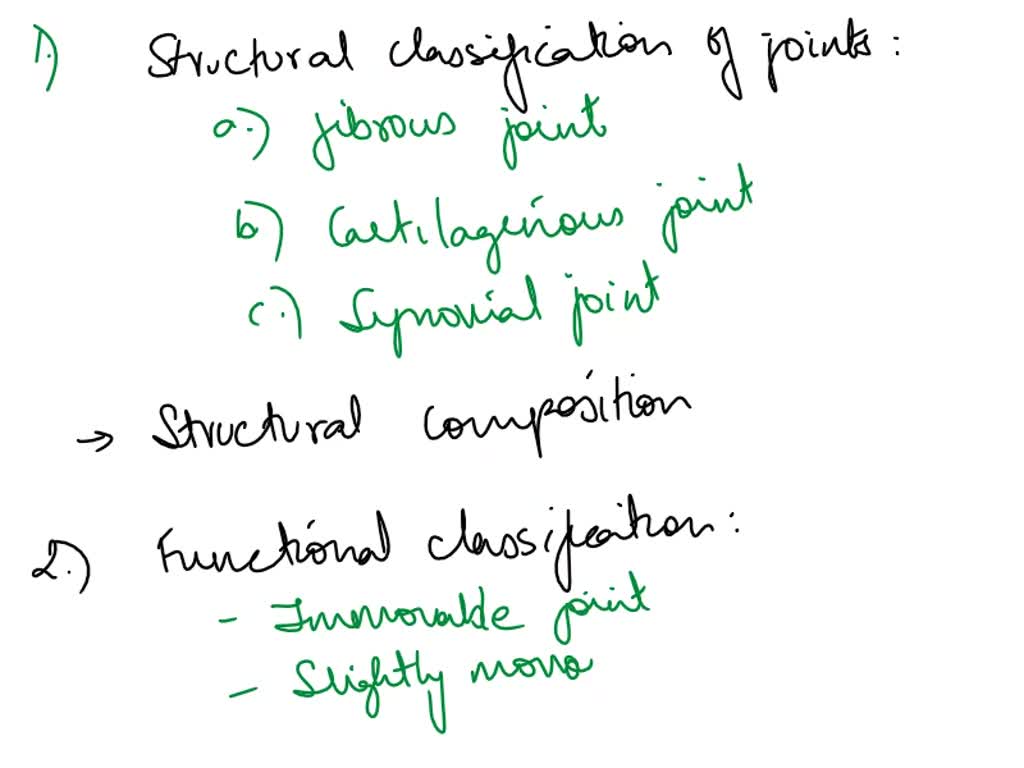 1.) Structural classification of joints :
a.) fibrous joint
b) Cartilagenous joint
c.) Synovial joint
→ Structural composition
2.) Functional classification :
- Immovable joint
- Slightly mova